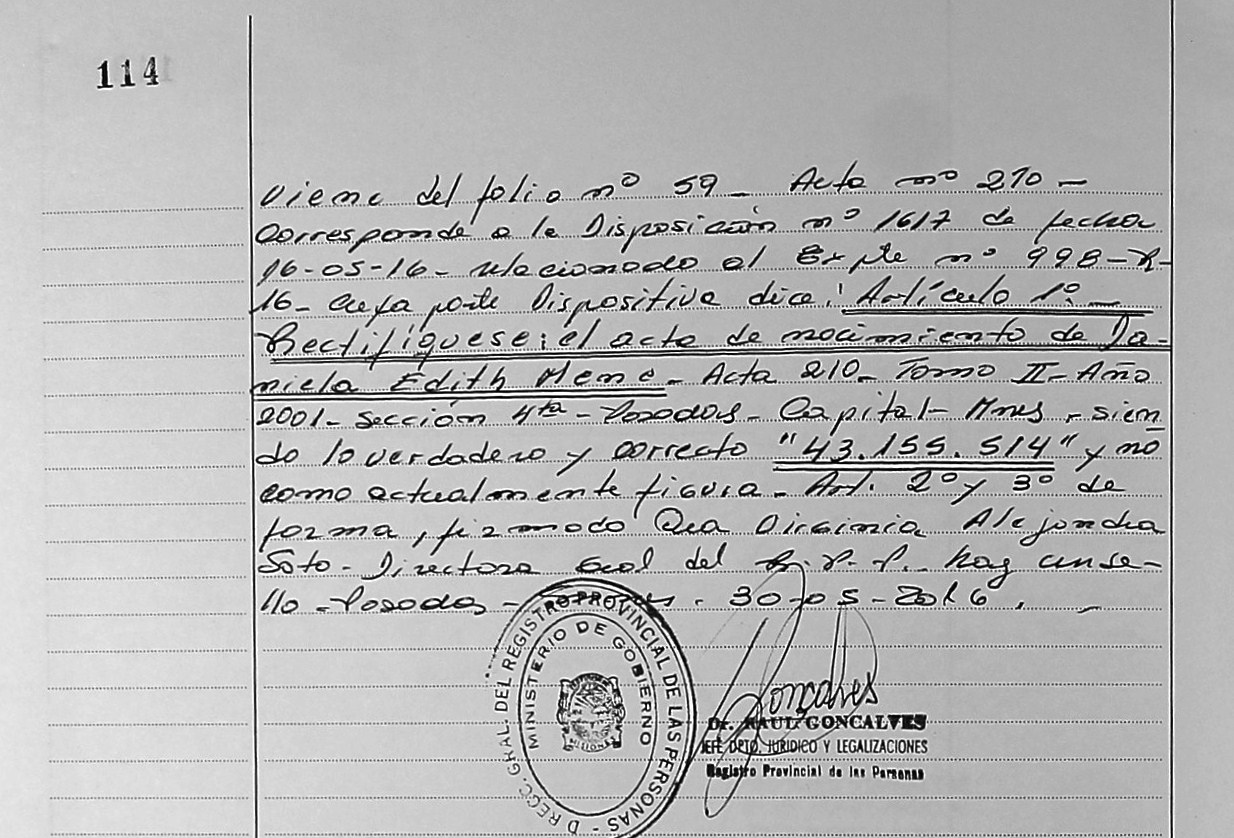 114
Viene del folio nº 59 - Acta nº 210 -
Corresponde a la Disposición nº 1617 de fecha
16-05-16- relacionado al Expte nº 998-R-
16- cuya parte Dispositiva dice: "Artículo 1º.-
Rectifíquese: el acta de nacimiento de Da-
niela Edith Mene - Acta 210- Tomo II- Año
2001- Sección 4ta - Posadas - Capital- Mnes, sien
do lo verdadero y correcto "43.155.514" y no
como actualmente figura - Art. 2º y 3º de
forma, firmado Dra Virginia Alejandra
Soto - Directora Gral del R.P.P. - hay un se-
llo - Posadas - 30-05-2016. -
DIRECC. GRAL. DEL REGISTRO PROVINCIAL DE LAS PERSONAS -
MINISTERIO DE GOBIERNO
MISIONES
Goncalves
Dr. RAUL GONCALVES
JEFE DPTO. JURIDICO Y LEGALIZACIONES
Registro Provincial de las Personas